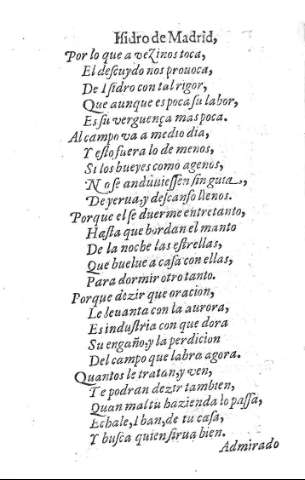 Iſidro de Madrid,
Por lo que a vezinos toca,
El deſcuydo nos prouoca,
De Iſidro con tal rigor,
Que aunque es poca ſu labor,
Es ſu verguença mas poca.
Al campo va a medio dia,
Y eſto fuera lo de menos,
Si los bueyes como agenos,
No ſe anduuieſſen ſin guia,
De yerua, y deſcanſo llenos.
Porque el ſe duerme entretanto,
Haſta que bordan el manto
De la noche las eſtrellas,
Que buelue a caſa con ellas,
Para dormir otro tanto.
Porque dezir que oracion,
Le leuanta con la aurora,
Es induſtria con que dora
Su engaño, y la perdicion
Del campo que labra agora.
Quantos le tratan, y ven,
Te podran dezir tambien,
Quan mal tu hazienda lo paſſa,
Echale, Iban, de tu caſa,
Y buſca quien ſirua bien.
Admirado